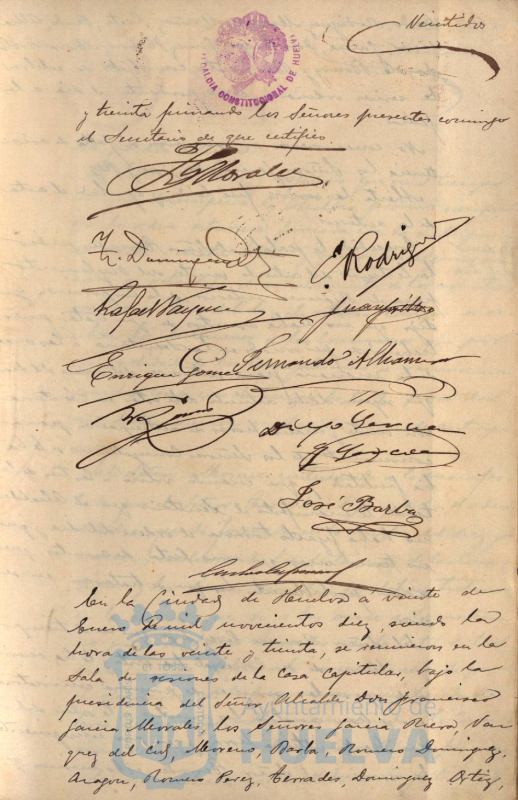 Veintidos
ALCALDIA CONSTITUCIONAL DE HUELVA
y treinta firmando los Señores presentes conmigo
el Secretario de que certifico.
Morales
Fr. Dominguez
E. Rodriguez
Rafael Vazquez
Juan
Enrique Gomez Fernando Alhama
Diego Garcia
y Garcia
José Barba
En la Ciudad de Huelva á veinte de
Enero de mil novecientos diez, siendo la
hora de las veinte y treinta, se reunieron en la
Sala de sesiones de la casa capitular, bajo la
presidencia del Señor Alcalde Don Francisco
Garcia Morales, los Señores Garcia Riera, Vaz
quez del Cid, Moreno, Barba, Romero Dominguez,
Aragon, Romero Perez, Terrades, Dominguez Ortiz,
Ayuntamiento de
HUELVA